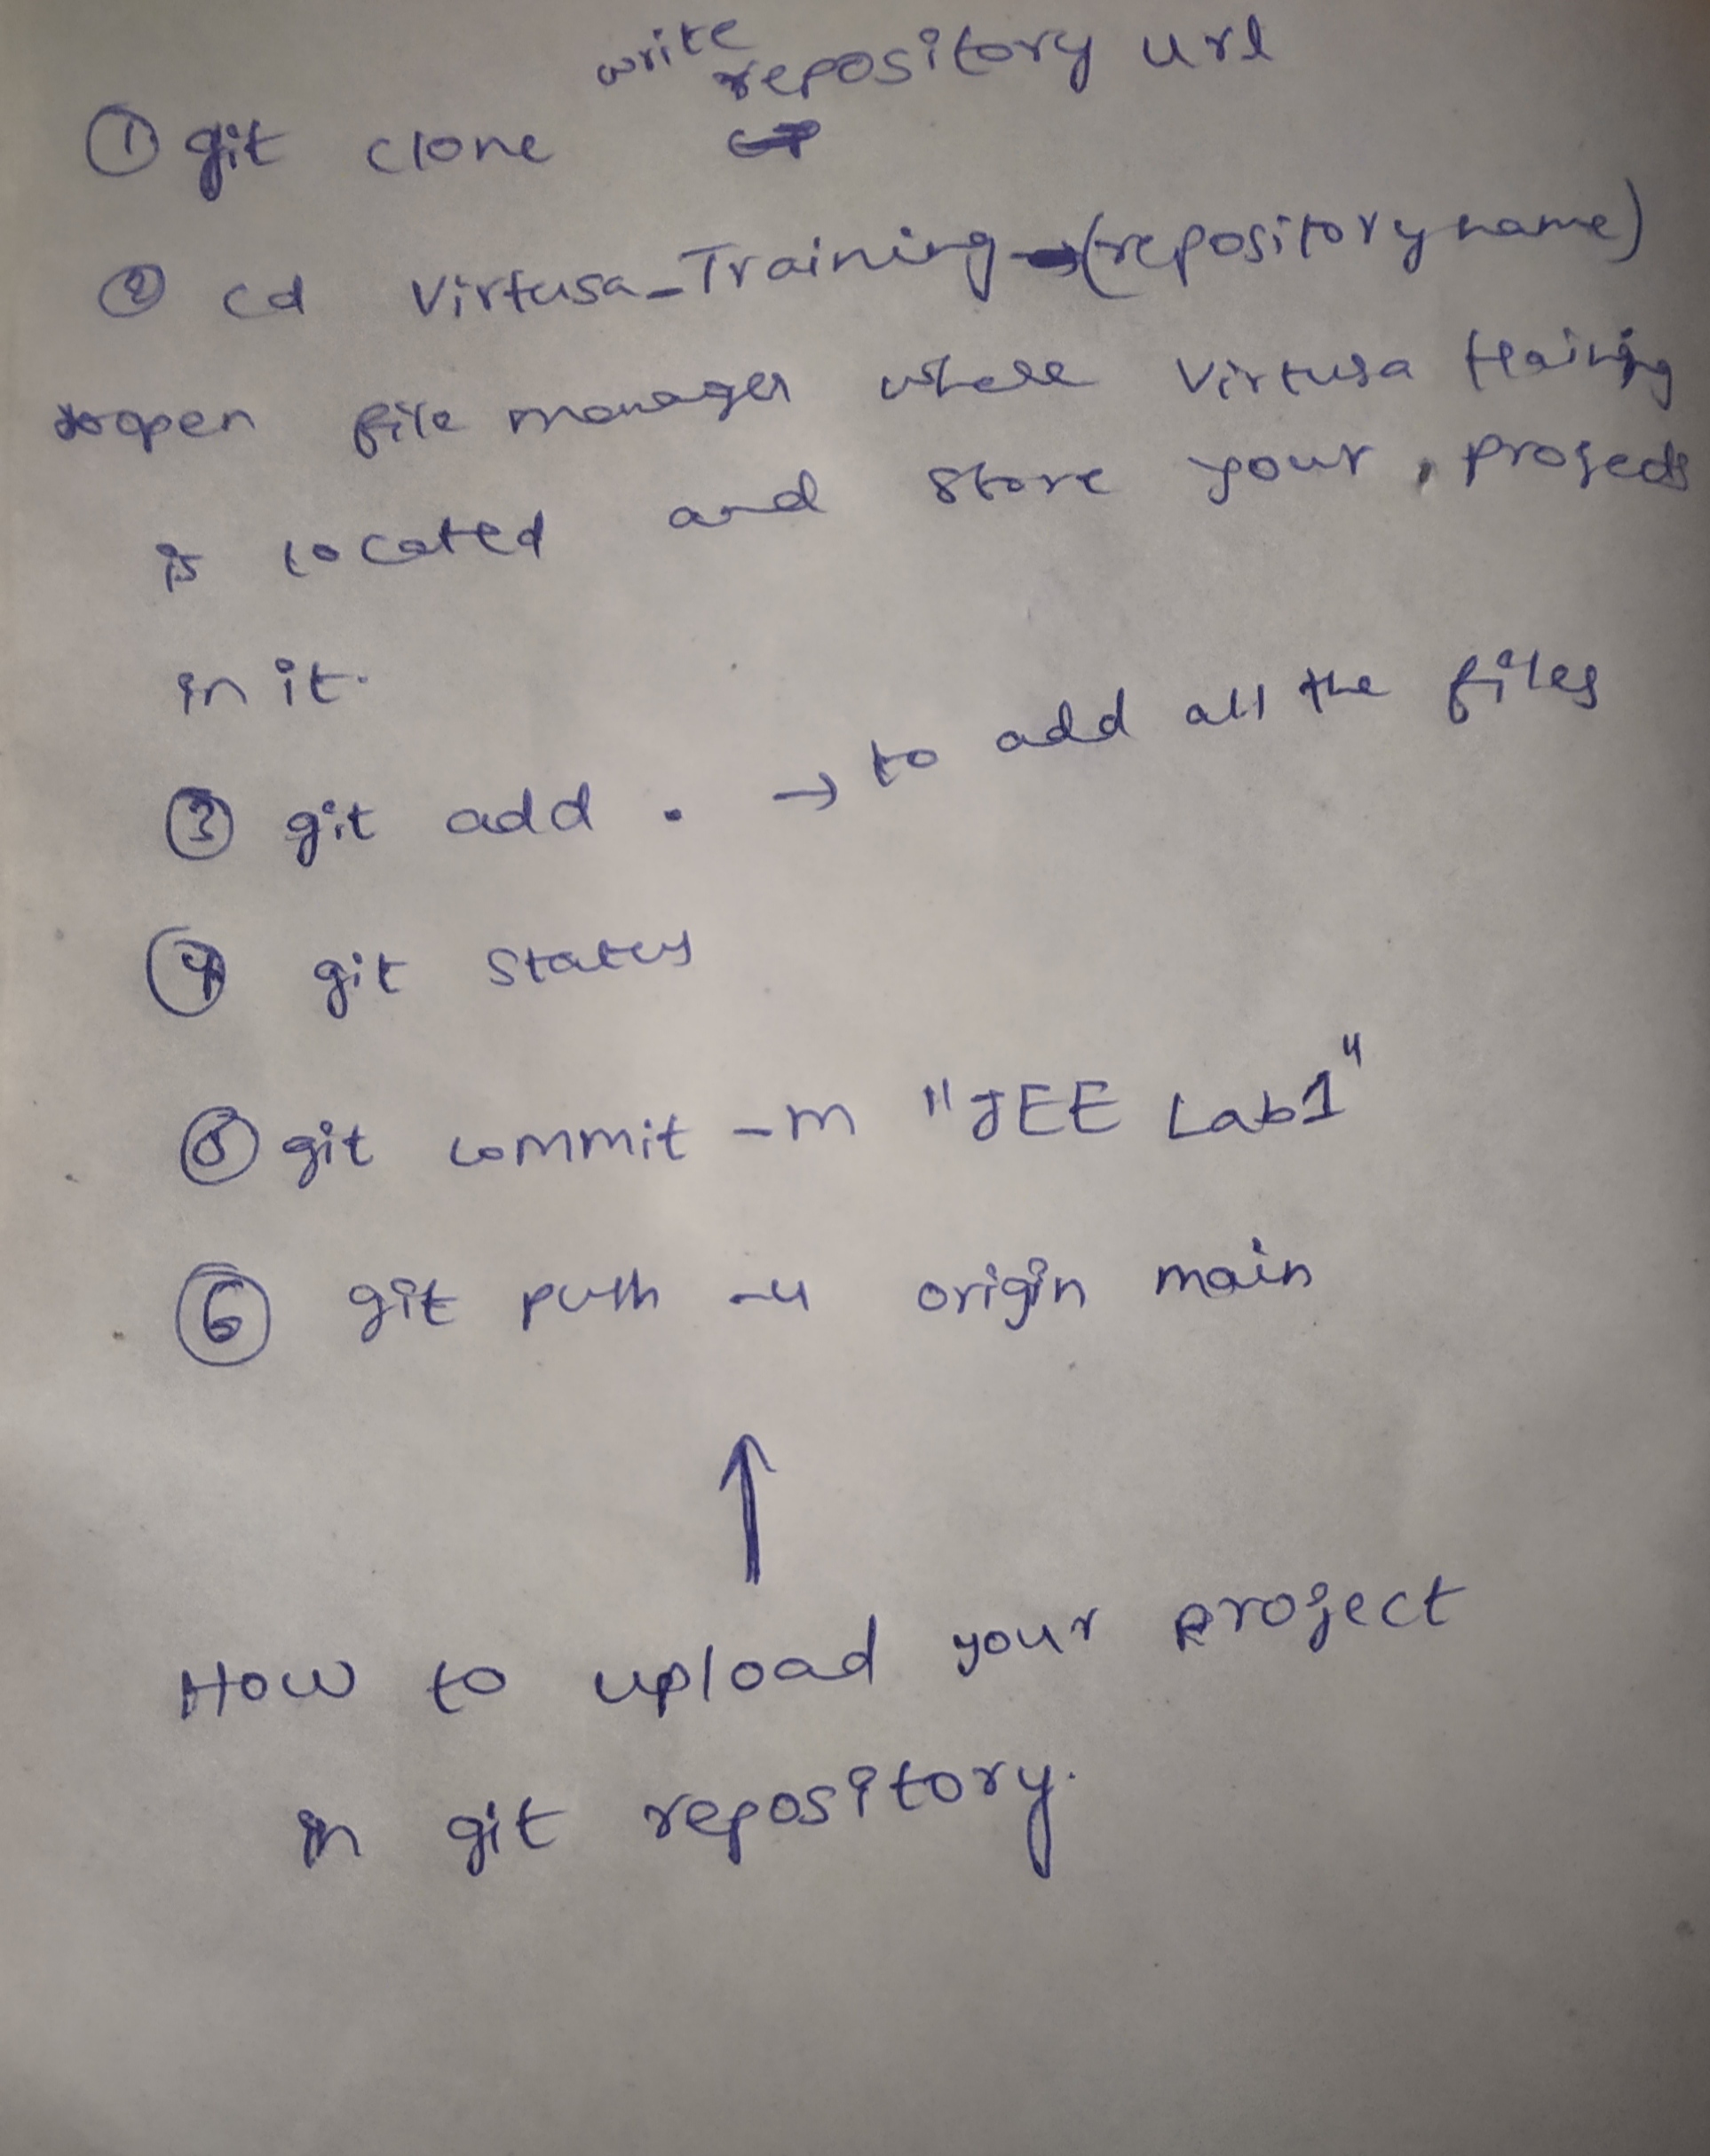 write repository url
① git clone
② cd Virtusa_Training → (repository name)
open file manager where Virtusa training
is located and store your projects
in it.
③ git add . → to add all the files
④ git status
⑤ git commit -m "JEE Lab1"
⑥ git push -u origin main
↑
How to upload your project
in git repository.